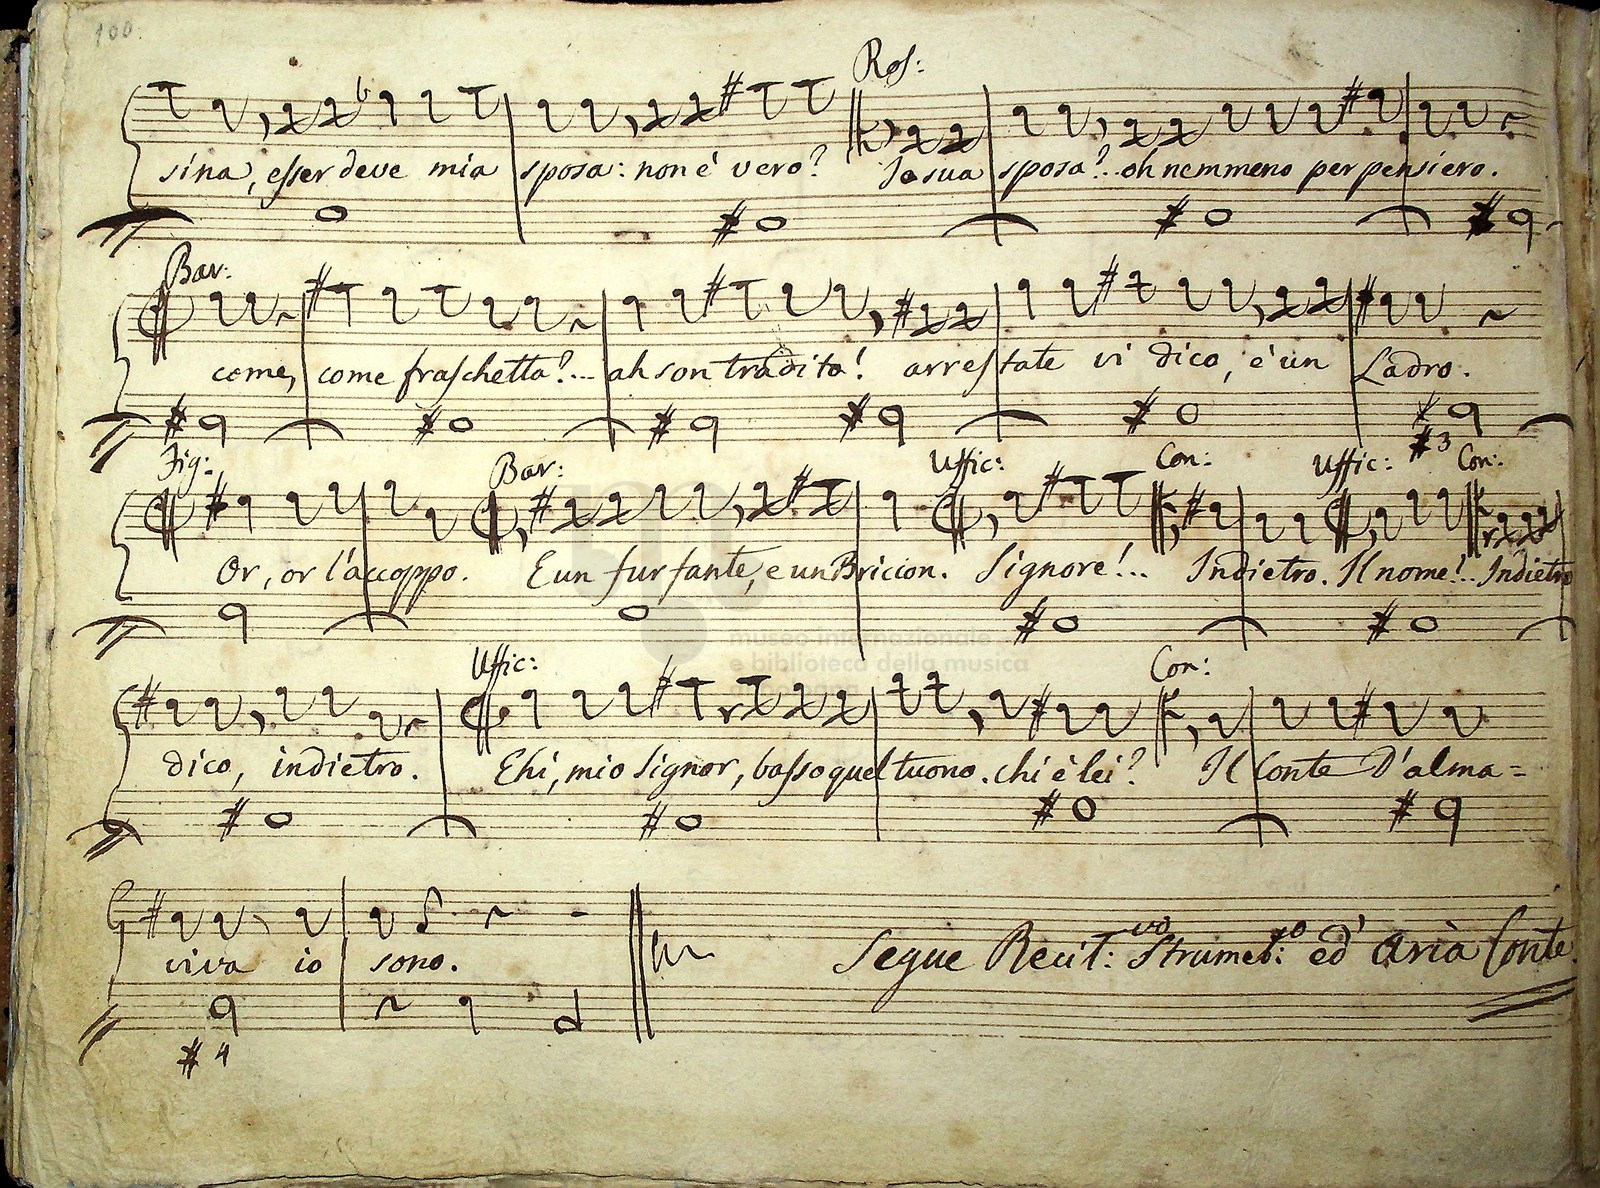 100.
Ros:
sina, esser deve mia sposa: non è vero? Io sua sposa?.. oh nemmeno per pensiero.
Bar:
come, come fraschetta?... ah son tradito! arrestate vi dico, è un Ladro.
#3
Fig: Bar: Uffic: Con: Uffic: Con:
Or, or l'accoppo. E un furfante, e un Briccon. Signore!... Indietro. Il nome!.. Indietro
museo internazionale
e biblioteca della musica
Uffic: Con:
dico, indietro. Ehi, mio Signor, basso quel tuono. chi è lei? Il Conte D'alma=
viva io sono.
Segue Recit:vo Strumet:to ed' Aria Conte.
#4